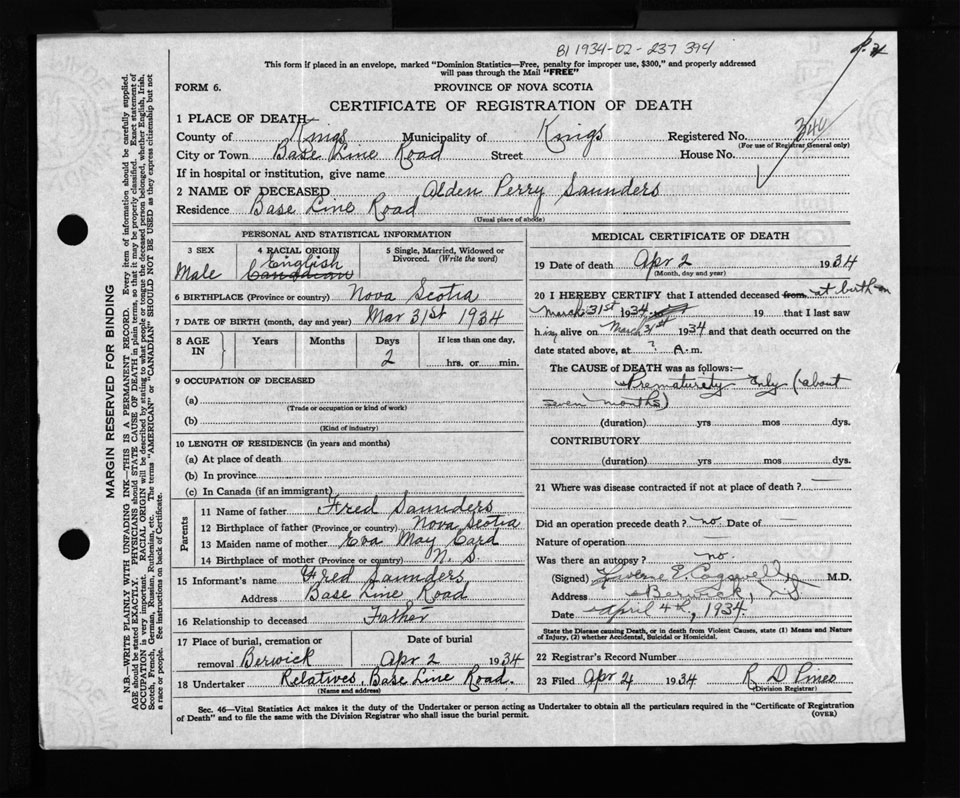 B1 1934-02-237 394
This form if placed in an envelope, marked "Dominion Statistics—Free, penalty for improper use, $300," and properly addressed
will pass through the Mail "FREE"
FORM 6.
PROVINCE OF NOVA SCOTIA
CERTIFICATE OF REGISTRATION OF DEATH
1 PLACE OF DEATH—
County of Kings Municipality of Kings Registered No. 340
(For use of Registrar General only)
City or Town Base Line Road Street House No.
If in hospital or institution, give name
2 NAME OF DECEASED Alden Perry Saunders
Residence Base Line Road
(Usual place of abode)
PERSONAL AND STATISTICAL INFORMATION
3 SEX 4 RACIAL ORIGIN 5 Single, Married, Widowed or Divorced. (Write the word)
Male English Canadian
6 BIRTHPLACE (Province or country) Nova Scotia
7 DATE OF BIRTH (month, day and year) Mar 31st 1934
8 AGE IN Years Months Days If less than one day,
2 hrs. or min.
9 OCCUPATION OF DECEASED
(a)
(Trade or occupation or kind of work)
(b)
(Kind of industry)
10 LENGTH OF RESIDENCE (in years and months)
(a) At place of death
(b) In province
(c) In Canada (if an immigrant)
Parents
11 Name of father Fred Saunders
12 Birthplace of father (Province or country) Nova Scotia
13 Maiden name of mother Eva May Card
14 Birthplace of mother (Province or country) N. S.
15 Informant's name Fred Saunders
Address Base Line Road
16 Relationship to deceased Father
17 Place of burial, cremation or Date of burial
removal Berwick Apr 2 1934
18 Undertaker Relatives, Base Line Road.
(Name and address)
MEDICAL CERTIFICATE OF DEATH
19 Date of death Apr 2 1934
(Month, day and year)
20 I HEREBY CERTIFY that I attended deceased from at birth on
March 31st 1934 19 that I last saw
him alive on March 31st 1934 and that death occurred on
date stated above, at ? A. m.
The CAUSE of DEATH was as follows:—
Prematurity only (about
seven months)
(duration) yrs mos dys.
CONTRIBUTORY
(duration) yrs. mos. dys.
21 Where was disease contracted if not at place of death? —
Did an operation precede death? no. Date of —
Nature of operation —
Was there an autopsy? no.
(Signed) E Cogswell M.D.
Address Berwick, NS
Date April 4th, 1934
State the Disease causing Death, or in death from Violent Causes, state (1) Means and Nature
of Injury, (2) whether Accidental, Suicidal or Homicidal.
22 Registrar's Record Number
23 Filed Apr 4 1934 R D Pineo
(Division Registrar)
Sec. 46—Vital Statistics Act makes it the duty of the Undertaker or person acting as Undertaker to obtain all the particulars required in the "Certificate of Registration
of Death" and to file the same with the Division Registrar who shall issue the burial permit.
(OVER)
MARGIN RESERVED FOR BINDING
N.B.—WRITE PLAINLY WITH UNFADING INK—THIS IS A PERMANENT RECORD. Every item of information should be carefully supplied.
AGE should be stated EXACTLY. PHYSICIANS should STATE CAUSE OF DEATH in plain terms, so that it may be properly classified. Exact statement of
OCCUPATION is very important. RACIAL ORIGIN will be described by stating to what people or tongue the deceased person belonged, whether English, Irish,
Scotch, French, German, Russian, Ruthenian, etc. The terms "AMERICAN" or "CANADIAN" SHOULD NOT BE USED as they express citizenship but not
a race or people. See instructions on back of Certificate.